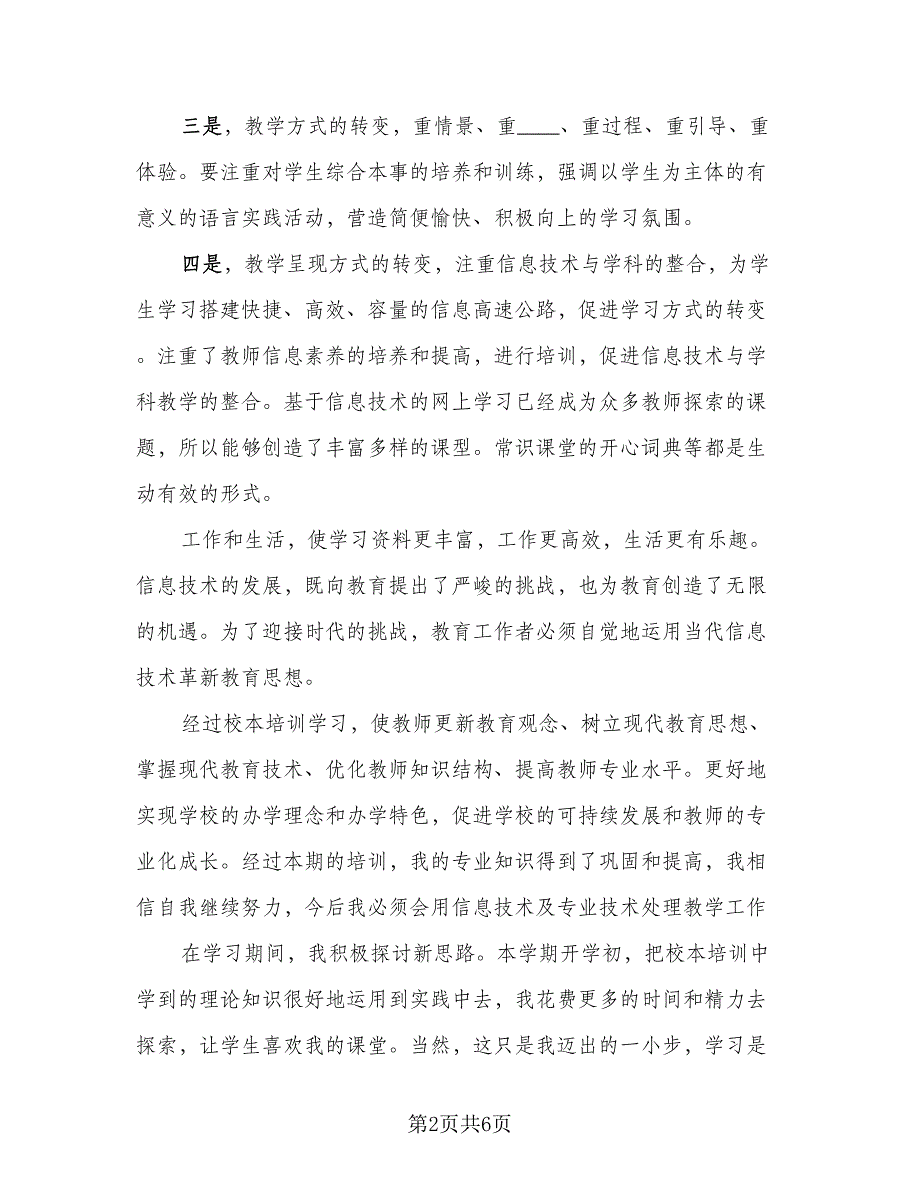 三是，教学方式的转变，重情景、重____、重过程、重引导、重
体验。要注重对学生综合本事的培养和训练，强调以学生为主体的有
意义的语言实践活动，营造简便愉快、积极向上的学习氛围。
四是，教学呈现方式的转变，注重信息技术与学科的整合，为学
生学习搭建快捷、高效、容量的信息高速公路，促进学习方式的转变
。注重了教师信息素养的培养和提高，进行培训，促进信息技术与学
科教学的整合。基于信息技术的网上学习已经成为众多教师探索的课
题，所以能够创造了丰富多样的课型。常识课堂的开心词典等都是生
动有效的形式。
工作和生活，使学习资料更丰富，工作更高效，生活更有乐趣。
信息技术的发展，既向教育提出了严峻的挑战，也为教育创造了无限
的机遇。为了迎接时代的挑战，教育工作者必须自觉地运用当代信息
技术革新教育思想。
经过校本培训学习，使教师更新教育观念、树立现代教育思想、
掌握现代教育技术、优化教师知识结构、提高教师专业水平。更好地
实现学校的办学理念和办学特色，促进学校的可持续发展和教师的专
业化成长。经过本期的培训，我的专业知识得到了巩固和提高，我相
信自我继续努力，今后我必须会用信息技术及专业技术处理教学工作
在学习期间，我积极探讨新思路。本学期开学初，把校本培训中
学到的理论知识很好地运用到实践中去，我花费更多的时间和精力去
探索，让学生喜欢我的课堂。当然，这只是我迈出的一小步，学习是
第2页共6页